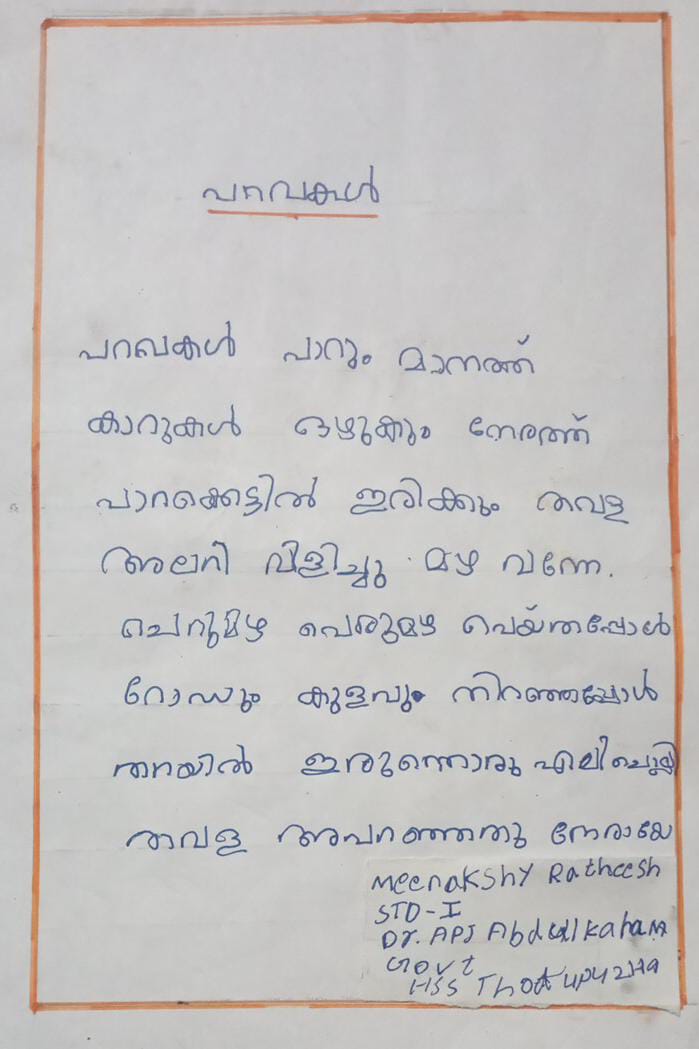 പറവകൾ
പറവകൾ പാറും മാനത്ത്
കാറുകൾ ഒഴുകും നേരത്ത്
പാറക്കെട്ടിൽ ഇരിക്കും തവള
അലറി വിളിച്ചു മഴ വന്നേ.
ചെറുമഴ പെരുമഴ പെയ്തപ്പോൾ
റോഡും കുളവും നിറഞ്ഞപ്പോൾ
തറയിൽ ഇരുന്നൊരു എലി ചൊല്ലി
തവള അപറഞ്ഞതു നേരായേ
Meenakshy Ratheesh
STD-I
Dr. APJ Abdul Kalam
Govt
HSS